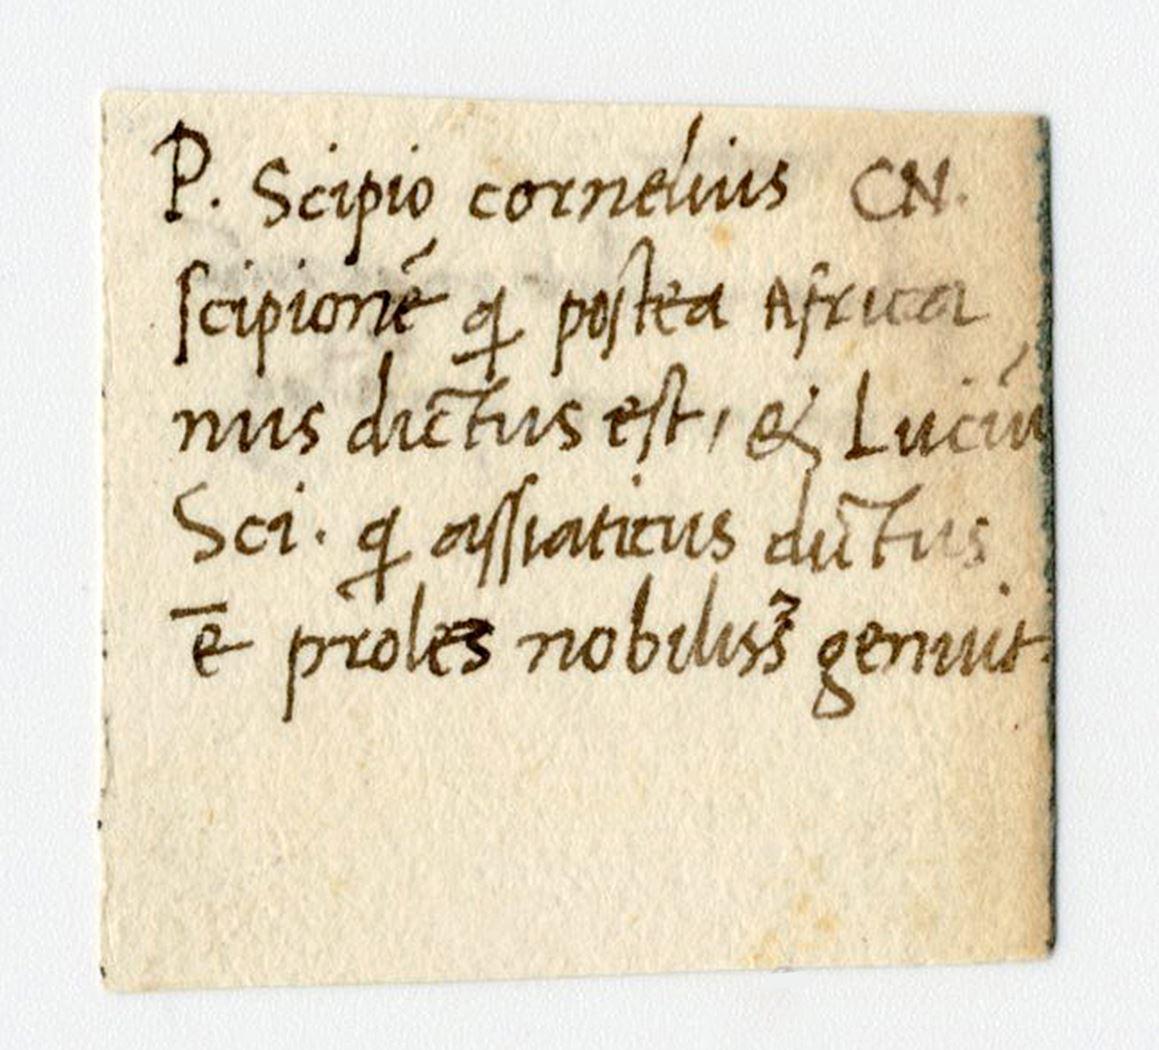 P. Scipio cornelius CN.
scipionē q postea Africa
nus dictus est, & Luciū
Sci. q assiaticus dictus
ē proles nobiliss3 genuit.